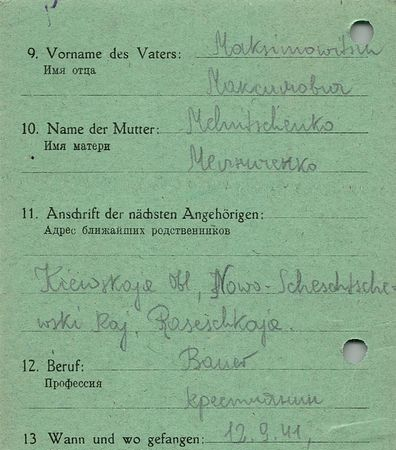 9. Vorname des Vaters: Maksimowitsch
Имя отца Максимович
10. Name der Mutter: Melnitschenko
Имя матери Мелниченко
11. Anschrift der nächsten Angehörigen:
Адрес ближайших родственников
Kiewskaja Obl, Nowo-Scheschtsche-
wski Raj. Raseschkaja.
12. Beruf: Bauer
Профессия крестьянин
13 Wann und wo gefangen: 12.9.41,